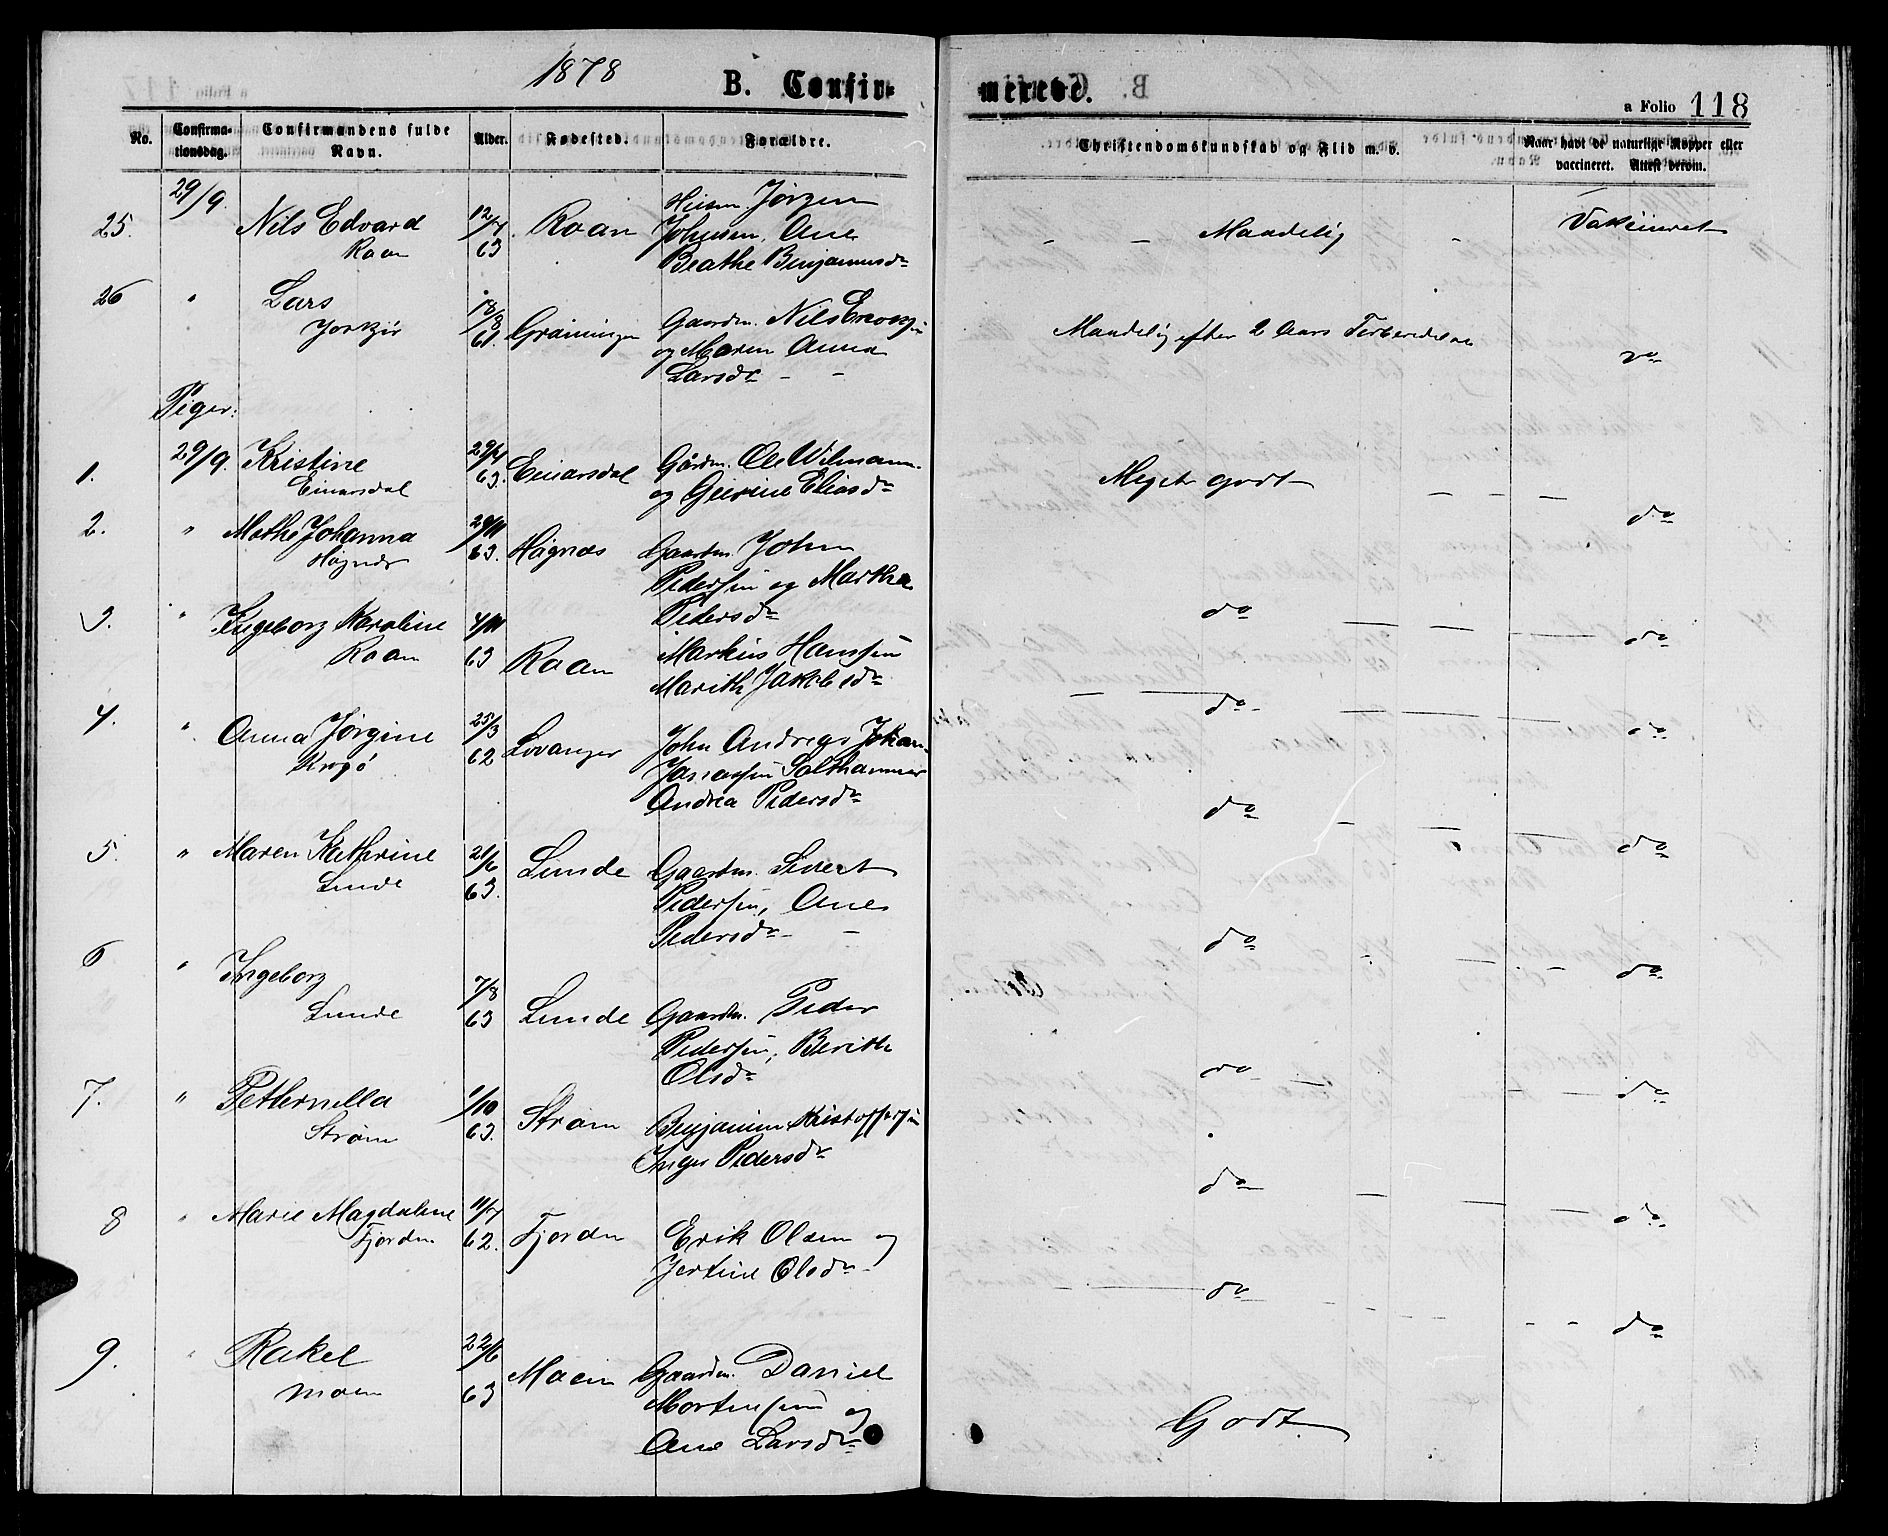 1878
B. Confir-
mered.
a Folio 118
No.
Confirma-
tionsdag.
Confirmandens fulde
Navn.
Alder.
Fødested.
Forældre.
Christendomskundskab og Flid m. v.
Naar havt de naturlige Kopper eller
vaccineret. Attest derom.
25. 29/9. Nils Edvard
Raan
12/7
63
Raan
Husm. Jørgen
Johnsen, Ane
Beathe Benjaminsdr
- - Maadelig -
Vakcineret
26 " Lars
18/8
61.
Gaardm. Nils
og Maren Anna
Larsdr - -
Maadelig efter 2 Aars Forberedelse
do
Piger:
1. 29/9. Kristine
Einarsdal
29/4
63.
Einarsdal
Gårdm. Ole Wilmann.
og Geirine Eliasdr
Meget godt - - -
do
2. " Mathe Johanna
Høgnes
29/11
63.
Høgnes
Gaardm. John
Pedersen og Martha
Pedersdr
do - - -
do
3. " Ingeborg Karoline
Raan
4/11
63
Raan
Markus Hanssen
Marith Jakobsdr
- - do -
do
4. " Anna Jørgine
Krogø
25/3
62
Lovanger
John Andreas Johan
Salthammer
Andrea Pedersdr
do - - -
do
5. " Maren Kathrine
Lunde
21/6
63.
Lunde
Gaardm. Sivert
Pedersen, Ane
Pedersdr - -
do - - -
do
6 " Ingeborg
Lunde
7/8
63
Lunde
Gaardm. Peder
Pedersen, Berith
Olsdr
do - -
do
7. " Pethernella
Strøm
1/10
63.
Strøm
Benjamin Kristoffersen
Inger Pedersdr
do - - -
do
8 " Marie Magdalene
Fjorden
11/7
62.
Fjorden
Erik Olsen og
Jertine Olsdr
- do - - -
do
9. " Rakel
Moen
22/6
63
Moen
Gaardm. Daniel
Mortensen og
Ane Larsdr
Godt